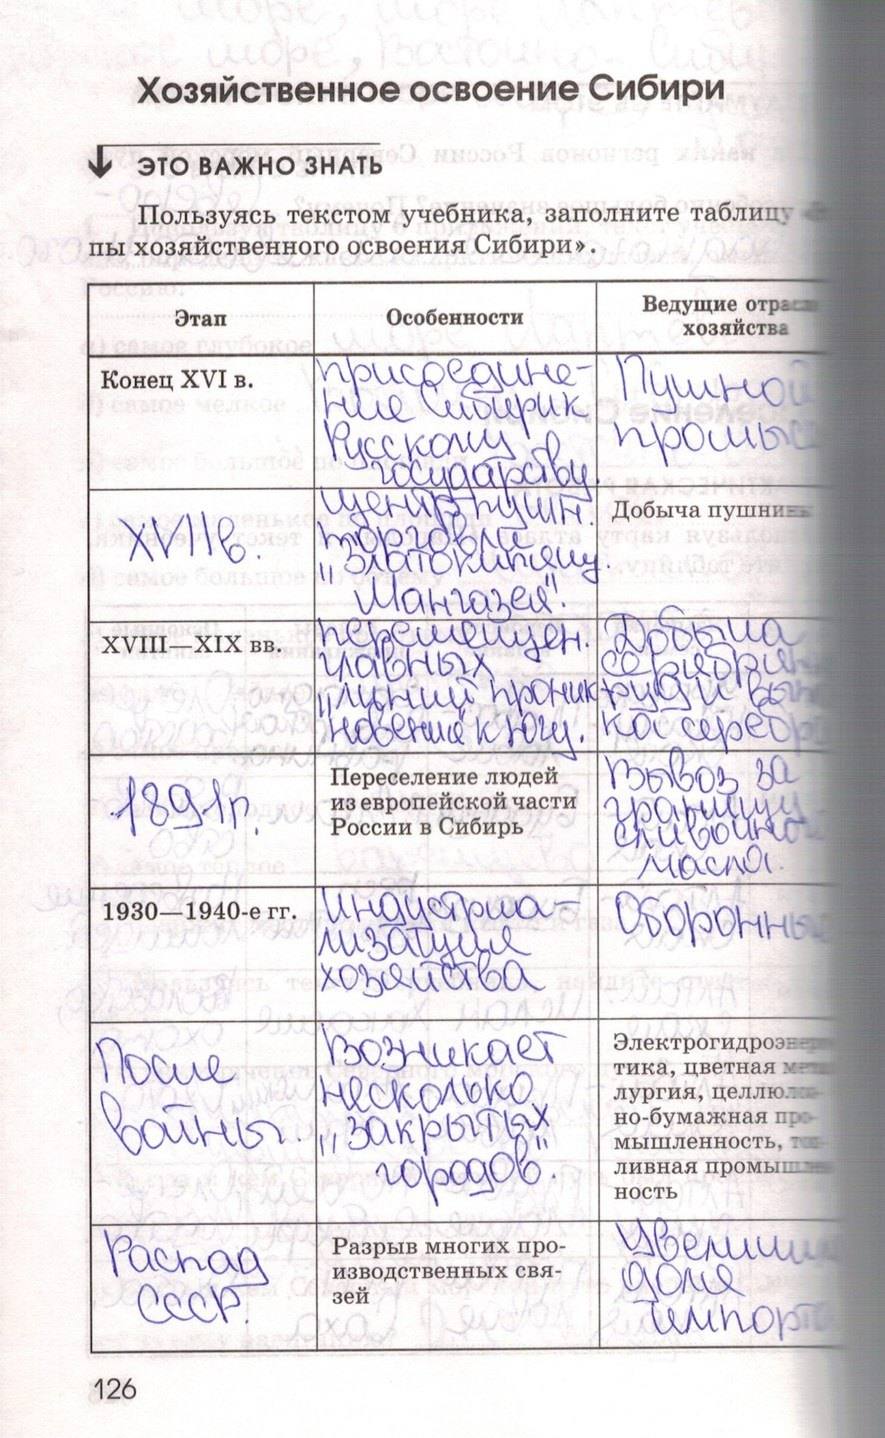 Хозяйственное освоение Сибири
ЭТО ВАЖНО ЗНАТЬ
Пользуясь текстом учебника, заполните таблицу
пы хозяйственного освоения Сибири».
Этап
Особенности
Ведущие отрас
хозяйства
Конец XVI в.
присоедине-
ние Сибири к
Русскому
государству
Пушной
промыс
XVII в.
центр пушн.
торговли
„златокипящу.
Мангазея".
Добыча пушнины
XVIII—XIX вв.
перемещен.
главных
„линий проник-
новения" к югу.
Добыча
серебрян
руды и вып
кос серебр
1891г.
Переселение людей
из европейской части
России в Сибирь
Вывоз за
границу
сливочног
масла.
1930—1940-е гг.
Индустриа-
лизация
хозяйства
Оборонны
После
войны.
Возникает
несколько
„закрытых
городов".
Электрогидроэнерге
тика, цветная мета
лургия, целлюлоз
но-бумажная про-
мышленность, топ-
ливная промышлен
ность
Распад
СССР.
Разрыв многих про-
изводственных свя-
зей
Увеличи
доля
импорта
126